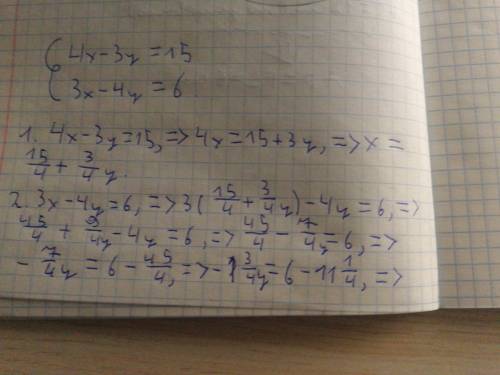 { 4x-3y=15
{ 3x-4y=6
1. 4x-3y=15, => 4x=15+3y, => x=
15/4 + 3/4 y.
2. 3x-4y=6, => 3(15/4 + 3/4 y)-4y=6, =>
45/4 + 9/4 y-4y=6, => 45/4 - 7/4 y=6, =>
- 7/4 y = 6 - 45/4, => -1 3/4 y=6-11 1/4, =>